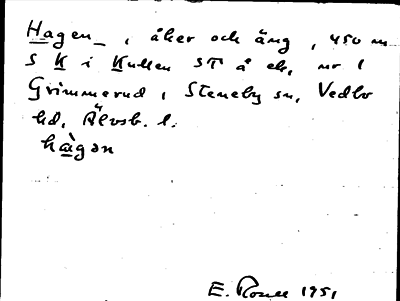 Hagen_ , åker och äng , 450 m
S K i Kullen ST å ek, nr 1
Grimmerud , Steneby sn, Vedbo
hd, Älvsb. l.
hàgən
E. 1951